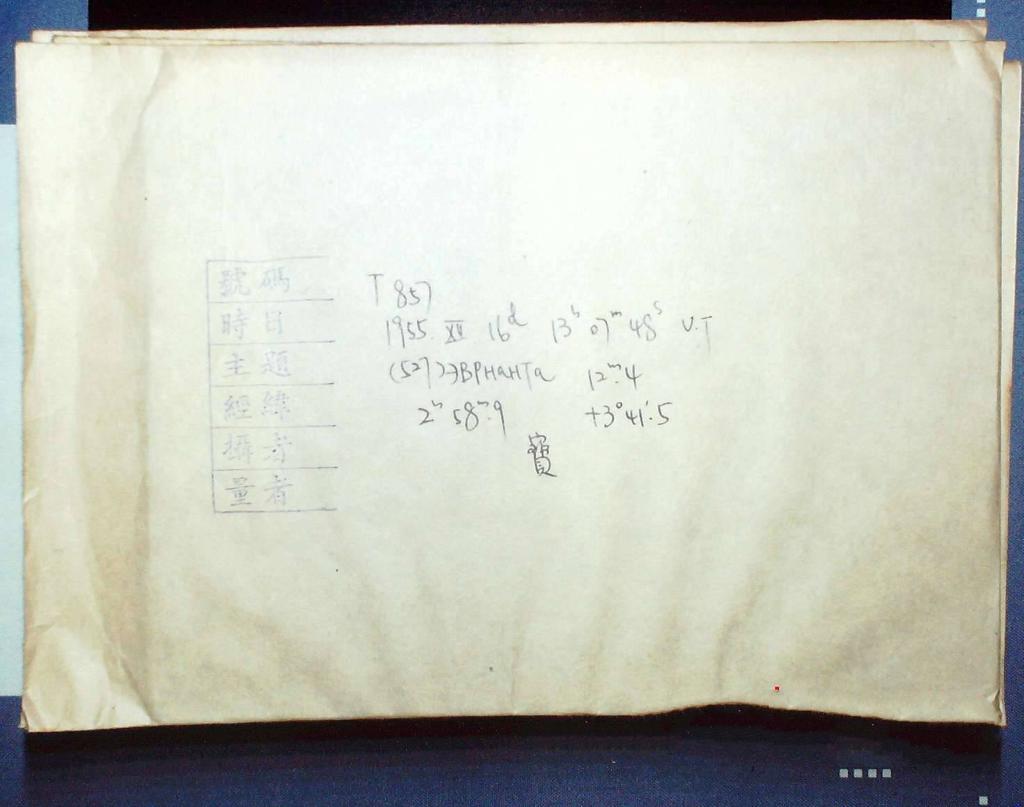 號碼 T 857
時日 1955. XII 16ᵈ 13ʰ 07ᵐ 48ˢ U.T
主題 (527) ЭВРИАНТА 12ᵐ.4
經緯 2ʰ 58ᵐ.9 +3°41'.5
攝者 寶
量者